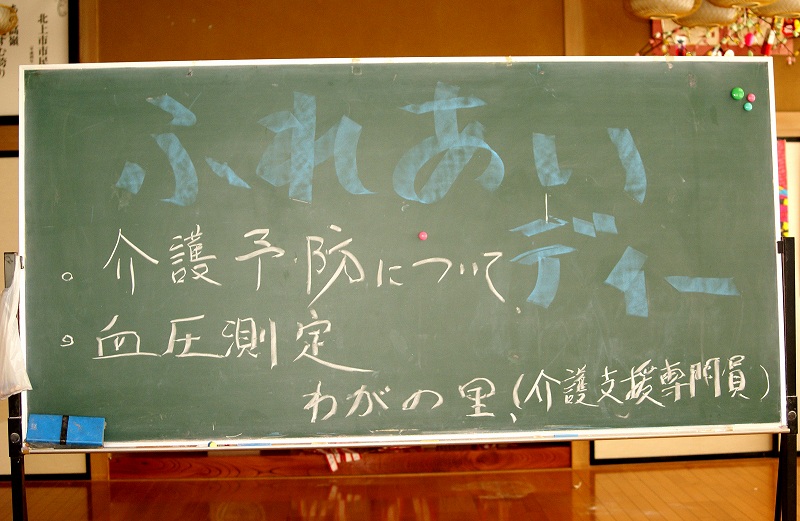 北上市市民
ふれあい
ディー
。介護予防について
。血圧測定
わがの里、(介護支援専門員)